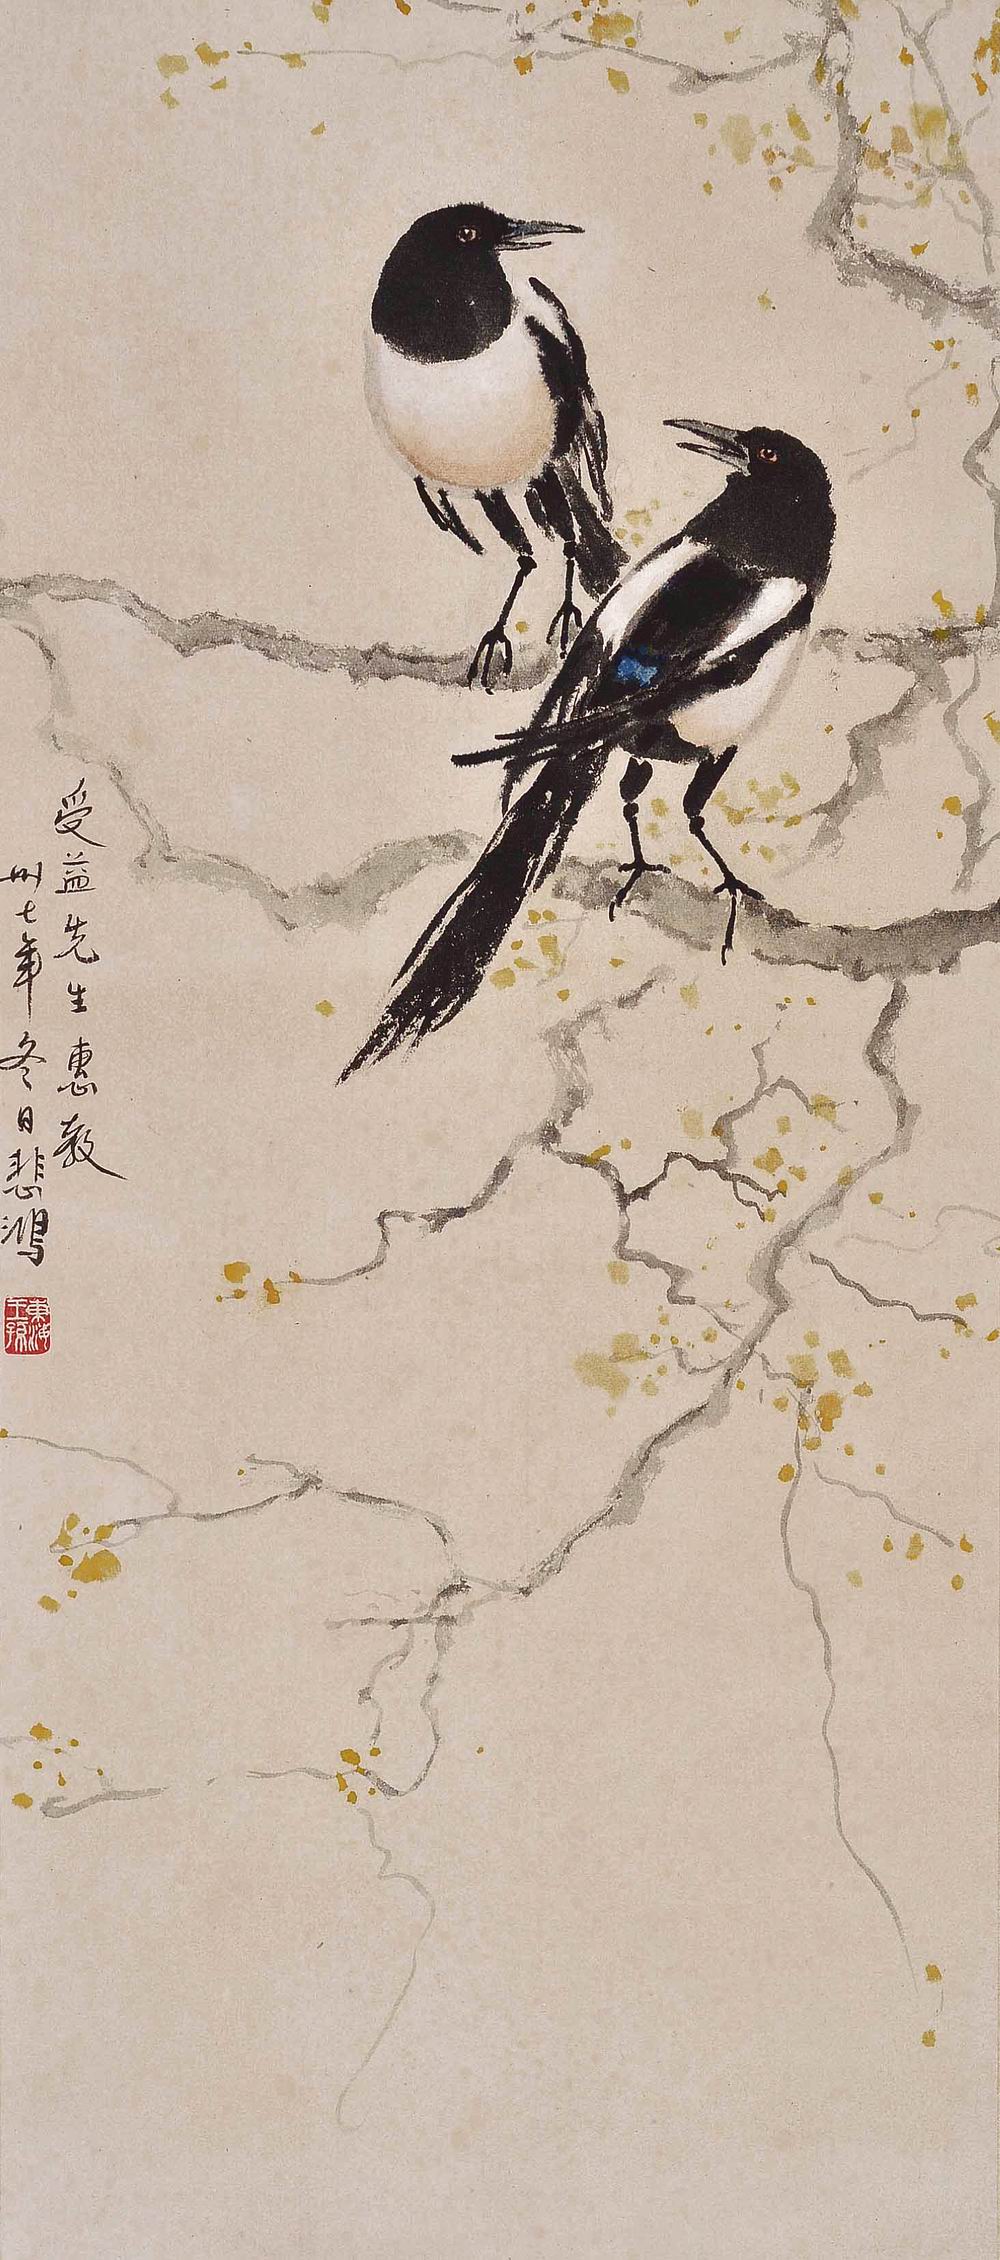 受益先生惠教
卅七年冬日悲鴻
東海王孫